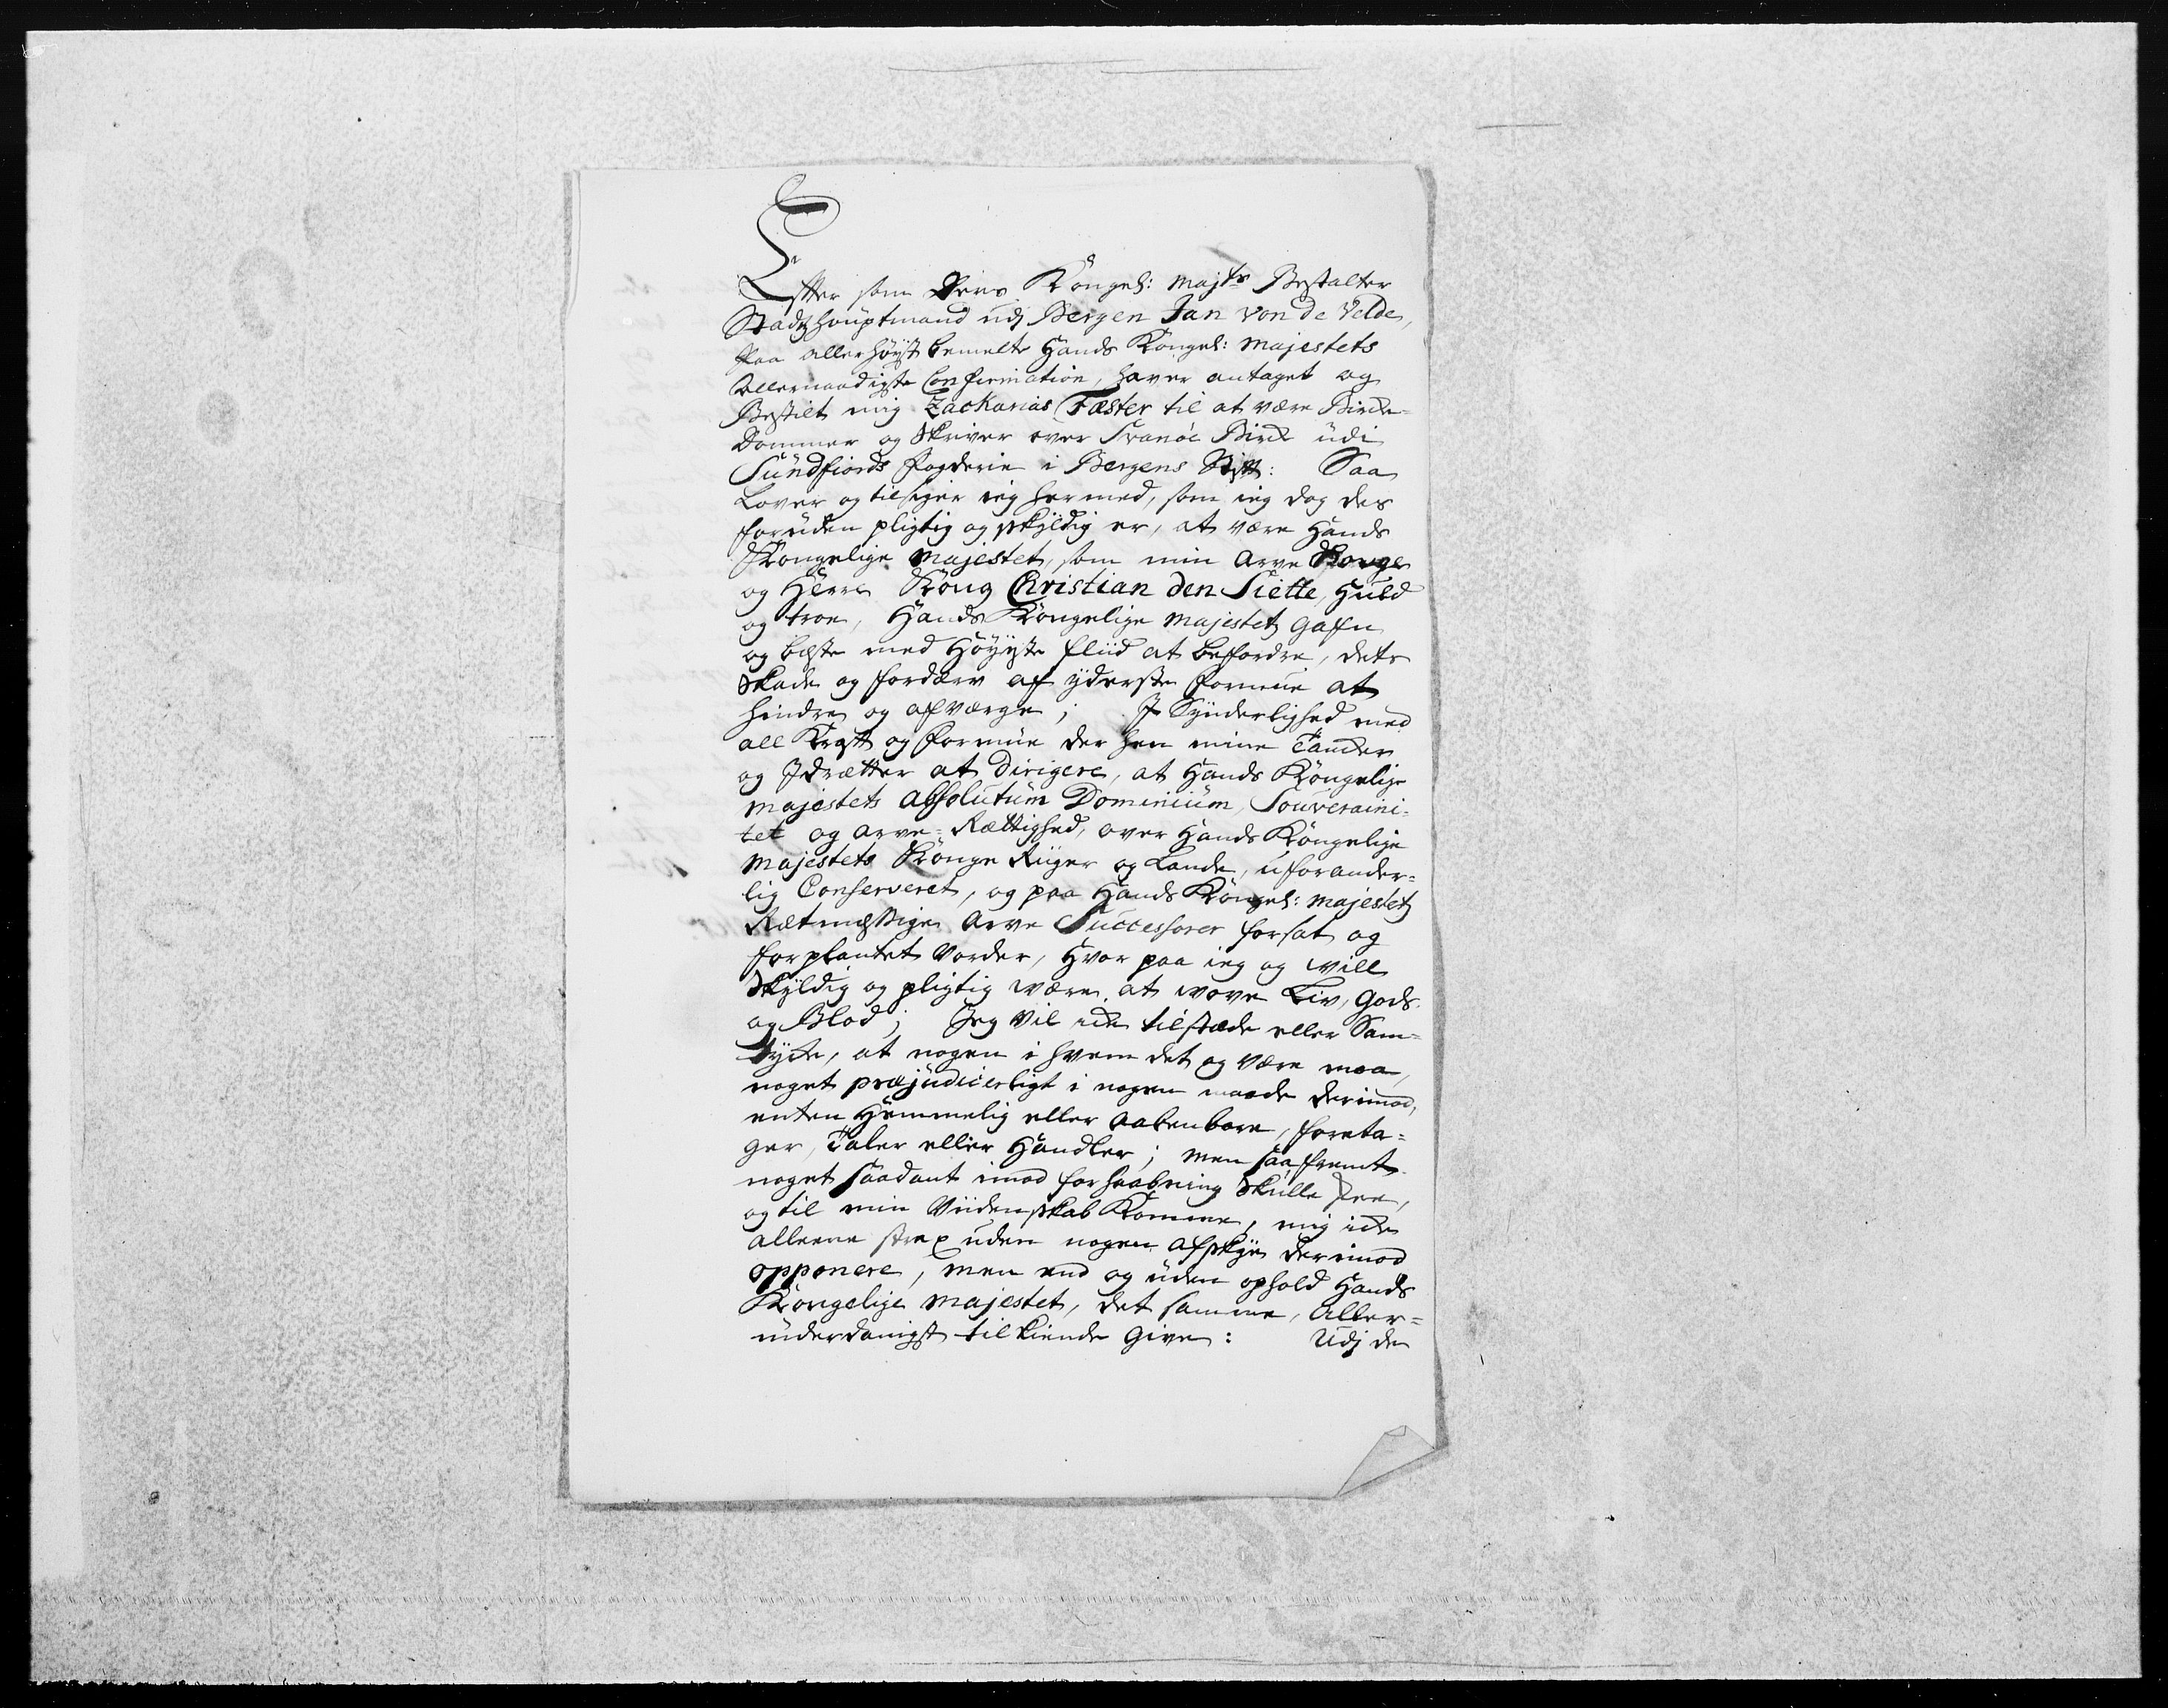 Efter som Deris Kongel: Majts Bestalter
Stadtzhouptmand udj Bergen Jan von de Velde,
Paa allerhøyst bemelte Hands Kongel: Majestets
Allernaadigste Confirmation, haver antaget og
Bestilt mig Zackarias Fæster til at være Bircke-
Dommer og Skriver over Svanöe Birck udi
Sündfiords Fogderie i Bergens Stift: Saa
Lover og tilsiger ieg hermed, som ieg dog des
foruden pligtig og skyldig er, at være Hands
Kongelige Majestet, som min Arve Konge
og Herre Kong Christian den Siette, Huld
og troe, Hands Kongelige Majestetz Gaffn
og beste med Høyeste fliid at befordre, dets
Skade og fordærv af yderste formue at
hindre og afværge; J Synderlighed med
all Krafft og formue der hen mine Tancker
og Jdrætter at dirigere, at Hands Kongelige
Majestets absolutum Dominium, Souveraini-
tet og Arve-Rættighed, over Hands Kongelige
Majestets Konge Riiger og Lande, uforander-
lig Conserveret, og paa Hands Kongel: Majestetz
Retmessige Arve Successorer forsat og
forplantet vorder, Hvor paa ieg og will
Skyldig og pligtig være at vove Liv, Gods
og Blod; Jeg vil icke tilstæde eller Sam-
tycke, at nogen i hvem det og være maa,
noget præjudicerligt i nogen maade derimod,
enten Hemmelig eller Aabenbare, foreta-
ger, Taler eller Handler; men saa fremt
noget saadant imod forhaabning Skulle skee,
og til min Viidenskab Komme, mig icke
alleene strax uden nogen Afskye derimod
opponere, men end og uden ophold Hands
Kongelige Majestet, det samme, Aller-
underdanigst tilkiende Give: Udj de